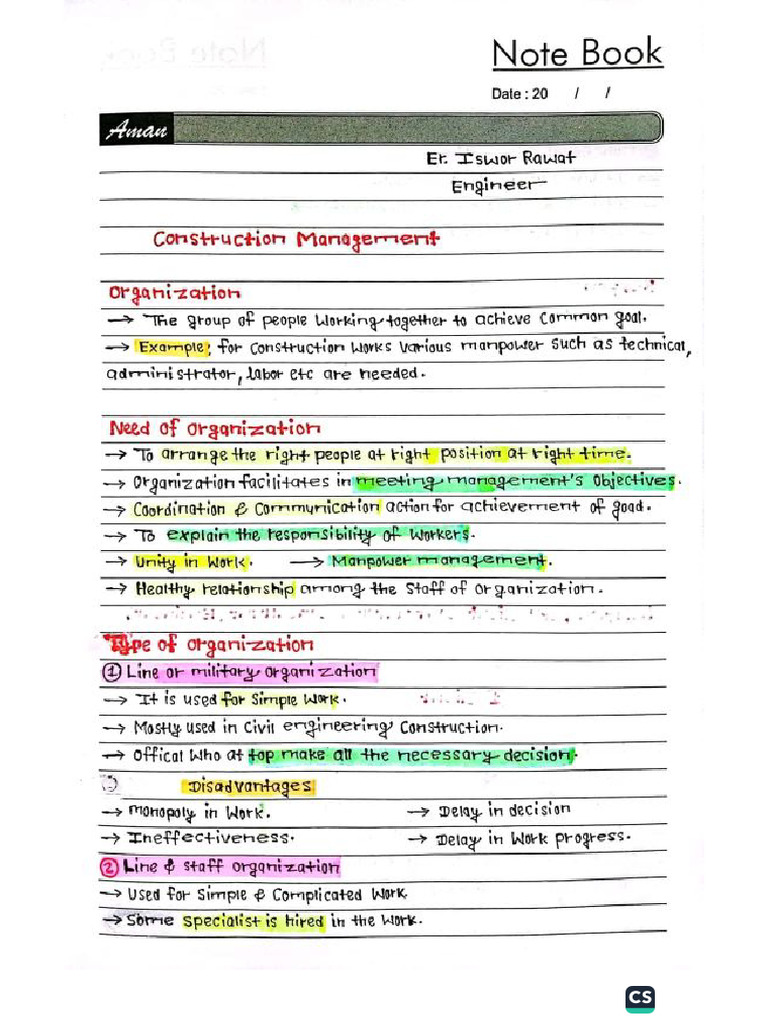 Note Book
Date : 20 / /
Aman
Er. Iswor Rawat
Engineer
Construction Management
Organization
→ The group of people working together to achieve common goal.
→ Example; for construction works various manpower such as technical,
administrator, labor etc are needed.
Need of organization
→ To arrange the right people at right position at right time.
→ Organization facilitates in meeting management's objectives.
→ Coordination & Communication action for achievement of goad.
→ To explain the responsibility of workers.
→ Unity in work. → Manpower management.
→ Healthy relationship among the staff of organization.
Type of organization
① Line or military organization
→ It is used for simple work.
→ Mostly used in civil engineering construction.
→ Offical who at top make all the necessary decision.
Disadvantages
→ Monopoly in work. → Delay in decision
→ Ineffectiveness. → Delay in work progress.
② Line & staff organization
→ Used for simple & complicated work
→ Some specialist is hired in the work.
CS